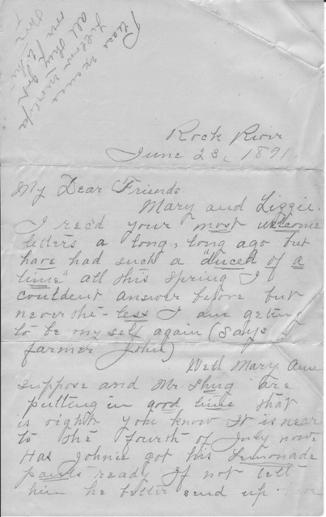 Rock River
June 23, 1891
My Dear Friends
Mary and Lizzie.
I rec'd your most welcome
letters a long, long ago but
have had such a "duced of a
time" all this Spring I
couldent answer before but
never-the-less I am geting
to be my self again (says
farmer John)
Well Mary Ann
suppose and Mr. Shug are
putting in good time that
is right you know it is near
to the fourth of July now.
Has Johnie got his Lemonade
pants ready If not tell
him he better send up